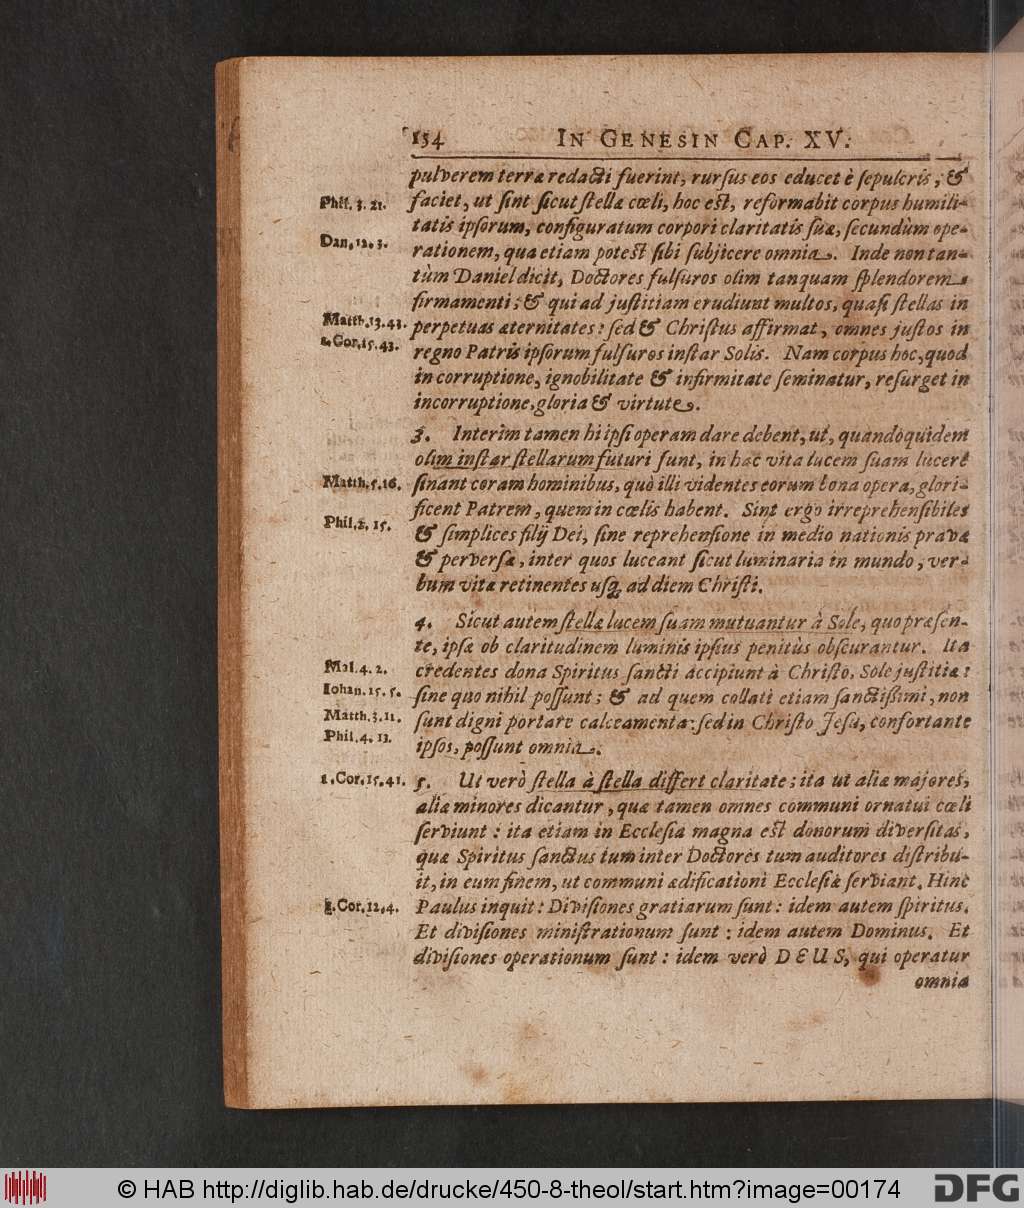 154 IN GENESIN CAP. XV.
pulverem terræ redacti fuerint, rursus eos educet è sepulcris, &
Phil. 3. 21. faciet, ut sint sicut stellæ cœli, hoc est, reformabit corpus humili-
tatis ipsorum, configuratum corpori claritatis suæ, secundùm ope-
Dan. 12. 3. rationem, qua etiam potest sibi subjicere omnia. Inde non tan-
tùm Daniel dicit, Doctores fulsuros olim tanquam splendorem
firmamenti; & qui ad justitiam erudiunt multos, quasi stellas in
Matth. 13. 43. perpetuas æternitates: sed & Christus affirmat, omnes justos in
1. Cor. 15. 43. regno Patris ipsorum fulsuros instar Solis. Nam corpus hoc, quod
in corruptione, ignobilitate & infirmitate seminatur, resurget in
incorruptione, gloria & virtute.
3. Interim tamen hi ipsi operam dare debent, ut, quandoquidem
olim instar stellarum futuri sunt, in hac vita lucem suam lucere
Matth. 5. 16. sinant coram hominibus, quò illi videntes eorum bona opera, glori-
ficent Patrem, quem in cœlis habent. Sint ergo irreprehensibiles
Phil. 2. 15. & simplices filij Dei, sine reprehensione in medio nationis pravæ
& perversæ, inter quos luceant sicut luminaria in mundo, ver-
bum vitæ retinentes usq; ad diem Christi.
4. Sicut autem stellæ lucem suam mutuantur à Sole, quo præsen-
te, ipsæ ob claritudinem luminis ipsius penitùs obscurantur. Ita
Mal. 4. 2. credentes dona Spiritus sancti accipiunt à Christo, Sole justitiæ:
Iohan. 15. 5. sine quo nihil possunt; & ad quem collati etiam sanctißimi, non
Matth. 3. 11. sunt digni portare calceamenta: sed in Christo Jesu, confortante
Phil. 4. 13. ipsos, possunt omnia.
1. Cor. 15. 41. 5. Ut verò stella à stella differt claritate; ita ut aliæ majores,
aliæ minores dicantur, quæ tamen omnes communi ornatui cœli
serviunt: ita etiam in Ecclesia magna est donorum diversitas,
quæ Spiritus sanctus tum inter Doctores tum auditores distribu-
it, in eum finem, ut communi ædificationi Ecclesiæ serviant. Hinc
1. Cor. 12. 4. Paulus inquit: Divisiones gratiarum sunt: idem autem spiritus.
Et divisiones ministrationum sunt: idem autem Dominus. Et
divisiones operationum sunt: idem verò DEUS, qui operatur
omnia
© HAB http://diglib.hab.de/drucke/450-8-theol/start.htm?image=00174 DFG